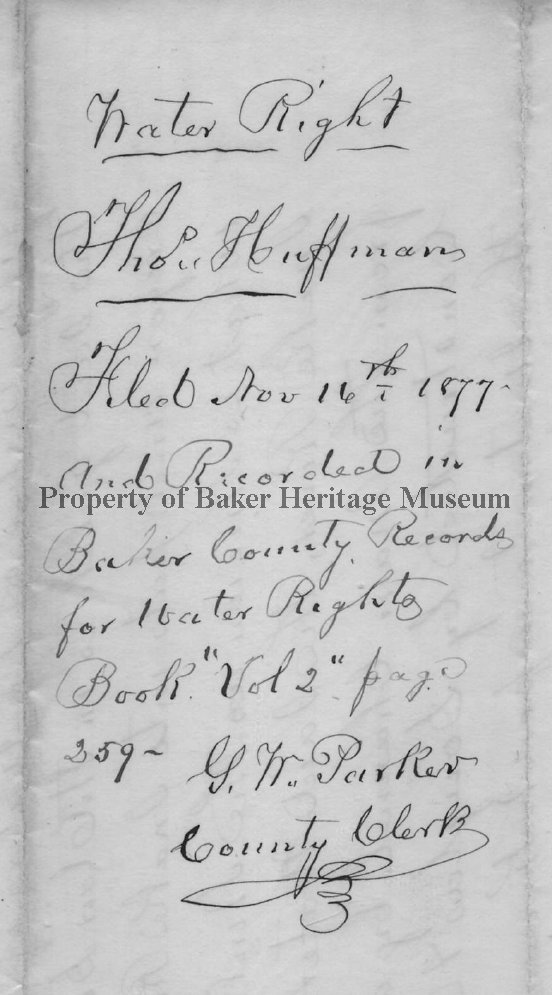 Water Right
Thos. Huffman
Filed Nov 16th 1877
And Recorded in
Property of Baker Heritage Museum
Baker County Records
for Water Rights
Book "Vol 2" page
259 -
G. W. Parker
County Clerk